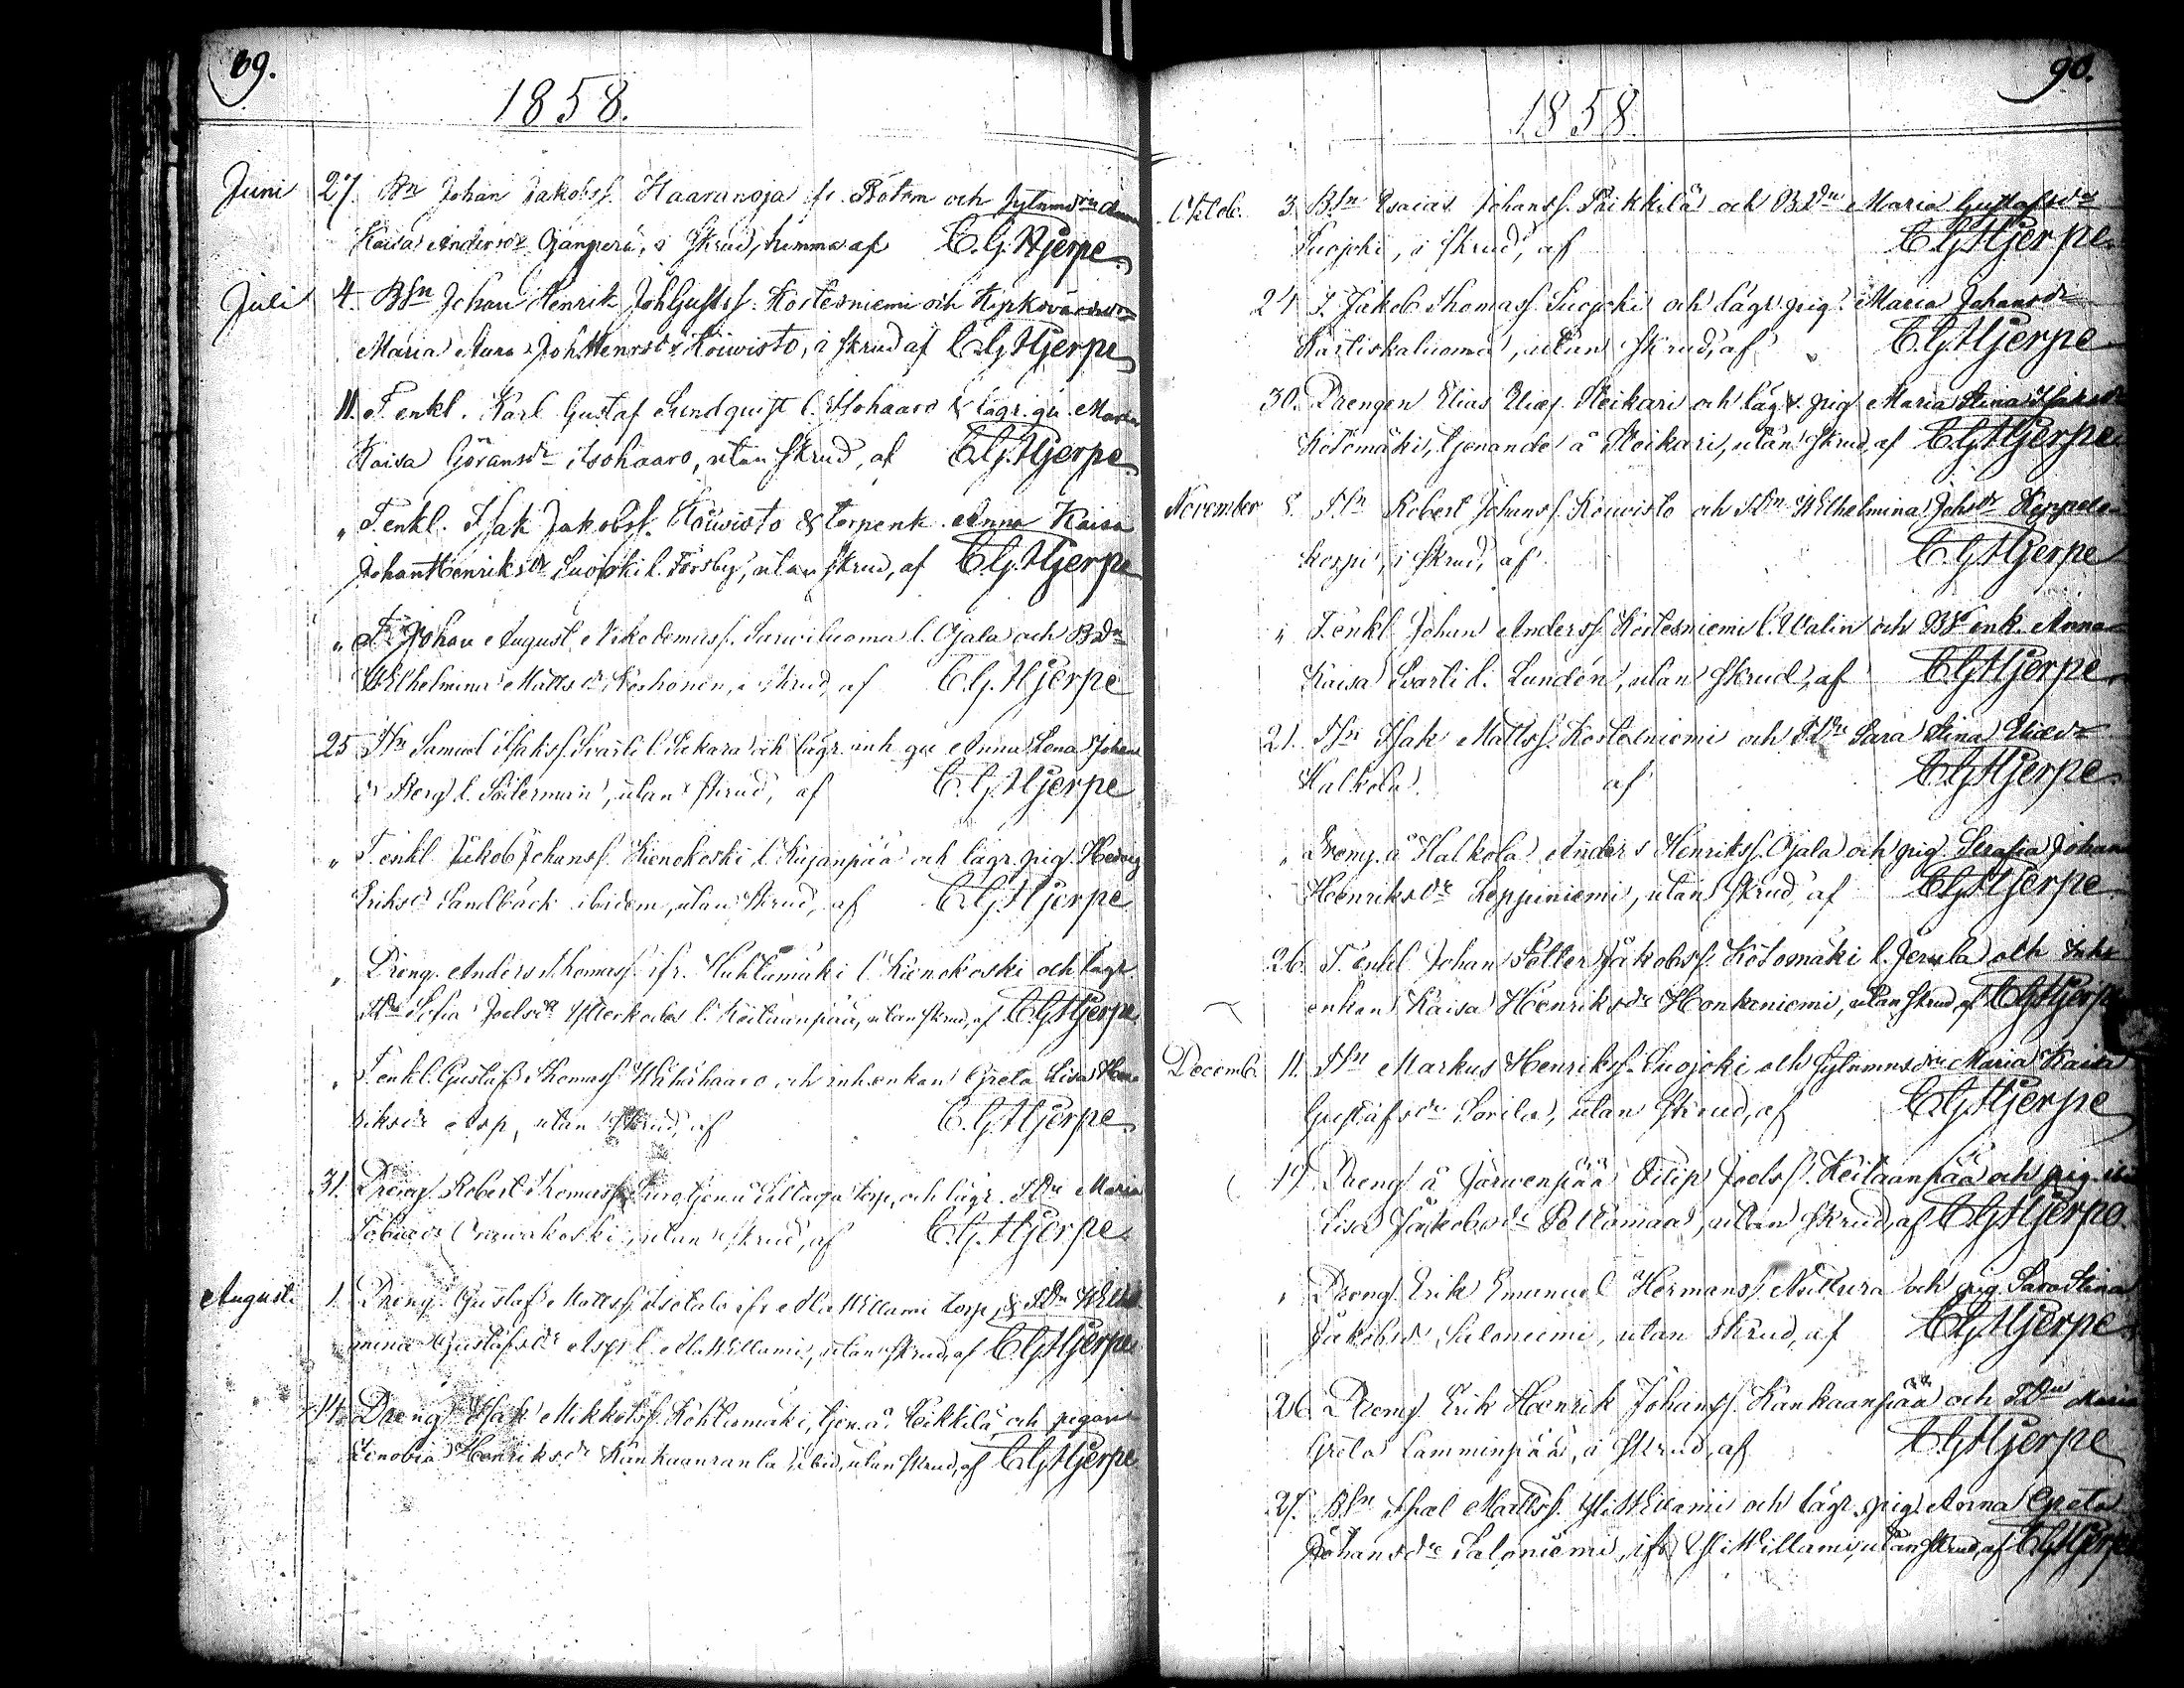 89.
1858.
Juni 27. Bn Johan Jakobss. Haaranoja fr. Rotom och Sytnmsdrn Anna
Kaisa Andersdr Ojanperä, i skrud, hemma af C. G. Hjerpe
Juli 4. Bsn Johan Henrik JohGustss. Koskesniemi och Kyrkovärdsdr
Maria Aura JohHenrsdr Koiwisto, i skrud af C. G. Hjerpe
11. T. enkl. Karl Gustaf Lundquist l. Isohaaro & lägr. qv. Maria
Kaisa Göransdr Isohaaro, utan skrud, af C. G. Hjerpe
" T. enkl. Isak Jakobss. Koiwisto & torpenk. Anna Kaisa
Johan Henriksdr Suojoki l. Forsby, utan skrud, af C. G. Hjerpe
" T. Johan August Nikodemuss. Sarwiluoma l. Ojala och Bdn
Wilhelmina Mattsdr Keskonen, i skrud, af C. G. Hjerpe
25 Tsn Samuel Isakss. Svarti l. Sakara och lägr. inh. qv. Anna Lena Johans
dr Berg l. Söderman, utan skrud, af C. G. Hjerpe
" T. enkl. Jakob Johanss. Kienokoski l. Kujanpää och lägr. pig. Hedvig
Eriksdr Sandbäck ibidem, utan skrud, af C. G. Hjerpe
" Dreng. Anders Thomass. ifr. Huhtamäki l. Kienokoski och lägr.
Tdn Sofia Joelsdr Ylikoski l. Keitaanpää, utan skrud, af C. G. Hjerpe
" T. enkl. Gustaf Thomass. Wähähaaro och inh. enkan Greta Lisa Hen
riksdr Asp, utan skrud, af C. G. Hjerpe
31. Dreng. Robert Thomass. Luro, tjen. å torp, och lägr. Tdn Maria
Tobiaedr Orawakoski, utan skrud, af C. G. Hjerpe
Augusti 1. Dreng. Gustaf Mattss. Isotalo ifr. AlaWillami torp, & Tdn Wilhel
mina Gustafsdr Asp l. AlaWillami, utan skrud, af C. G. Hjerpe
14. Dreng. Isak Mikkelss. Kohtamäki, tjen. å Peikkilä och pigan
Zenobia Henriksdr Kankaanranta ibid, utan skrud, af C. G. Hjerpe
90.
1858.
Oktob. 3. Bsn Esaias Johanss. Päikkilä och Bdn Maria Gustafsdr
Suojoki, i skrud, af C. G. Hjerpe
24 T. Jakob Thomass. Suojoki och lägr. pig. Maria Johansdr
Kaitiskaluoma, utan skrud, af C. G. Hjerpe
30. Drengen Elias Eliæs. Heikari och lägr. pig. Maria Stina Isaksdr
Kotomäki, tjenande å Heikari, utan skrud, af C. G. Hjerpe
November 8. Tsn Robert Johanss. Koiwisto och Tdn Wilhelmina Johsdr Keppele
koski, i skrud, af C. G. Hjerpe
" T. enkl. Johan Anderss. Koskesniemi l. Walin och Bs enk. Anna
Kaisa Svarti l. Lundén, utan skrud, af C. G. Hjerpe
21. Tsn Isak Mattss. Koskesniemi och Tdn Sara Stina Eliædr
Halkola. af C. G. Hjerpe
" Dreng. å Halkola Anders Henrikss. Ojala och pig. Serafia Johan
Henriksdr Leppiniemi, utan skrud, af C. G. Hjerpe
26. T. enkl. Johan Petter Jakobss. Kotomäki l. Jerula och
enkan Kaisa Henriksdr Honkaniemi, utan skrud, af C. G. Hjerpe
Decemb. 11. Tsn Markus Henrikss. Suojoki och Sytnmnsdrn Maria Kaisa
Gustafsdr Sorila, utan skrud, af C. G. Hjerpe
19 Dreng. å Järwenpää Filip Joelss. Keitaanpää och pig.
Lisa Jakobsdr Peltomaa, utan skrud, af C. G. Hjerpe
" Dreng. Erik Emanuel Hermanss. och pig. Sara Stina
Jakobsdr Saloniemi, utan skrud, af C. G. Hjerpe
26. Dreng. Erik Henrik Johanss. Kankaanpää och Tdn Maria
Greta Lamminpää, i skrud, af C. G. Hjerpe
27. Bsn Isræl Mattss. YliWillami och lägr. pig. Anna Greta
Johansdr Saloniemi, ifr. YliWillami, utan skrud, af C. G. Hjerpe